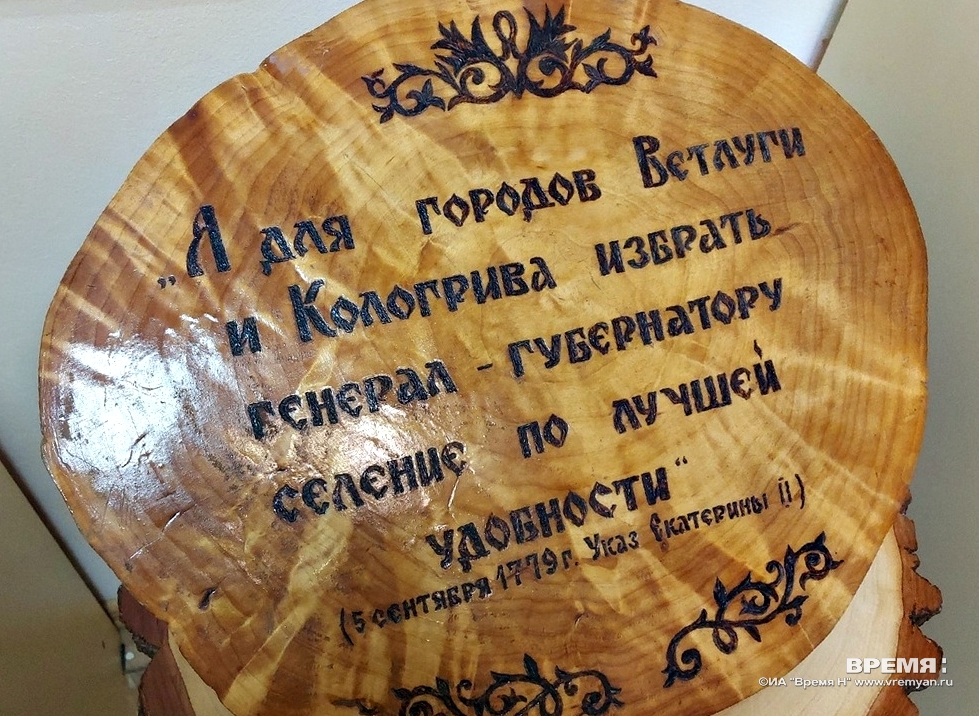 „Я для городов Ветлуги
и Кологрива избрать
генерал - губернатору
селение по лучшей
удобности“
(5 сентября 1779 г. Указ Екатерины II.)
ВРЕМЯ:
©ИА "Время Н" www.vremyan.ru